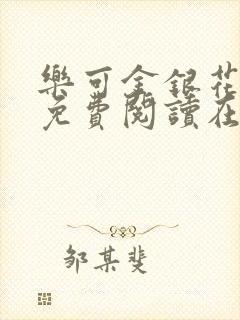 樂可金銀花
免費閱讀在
邹某斐